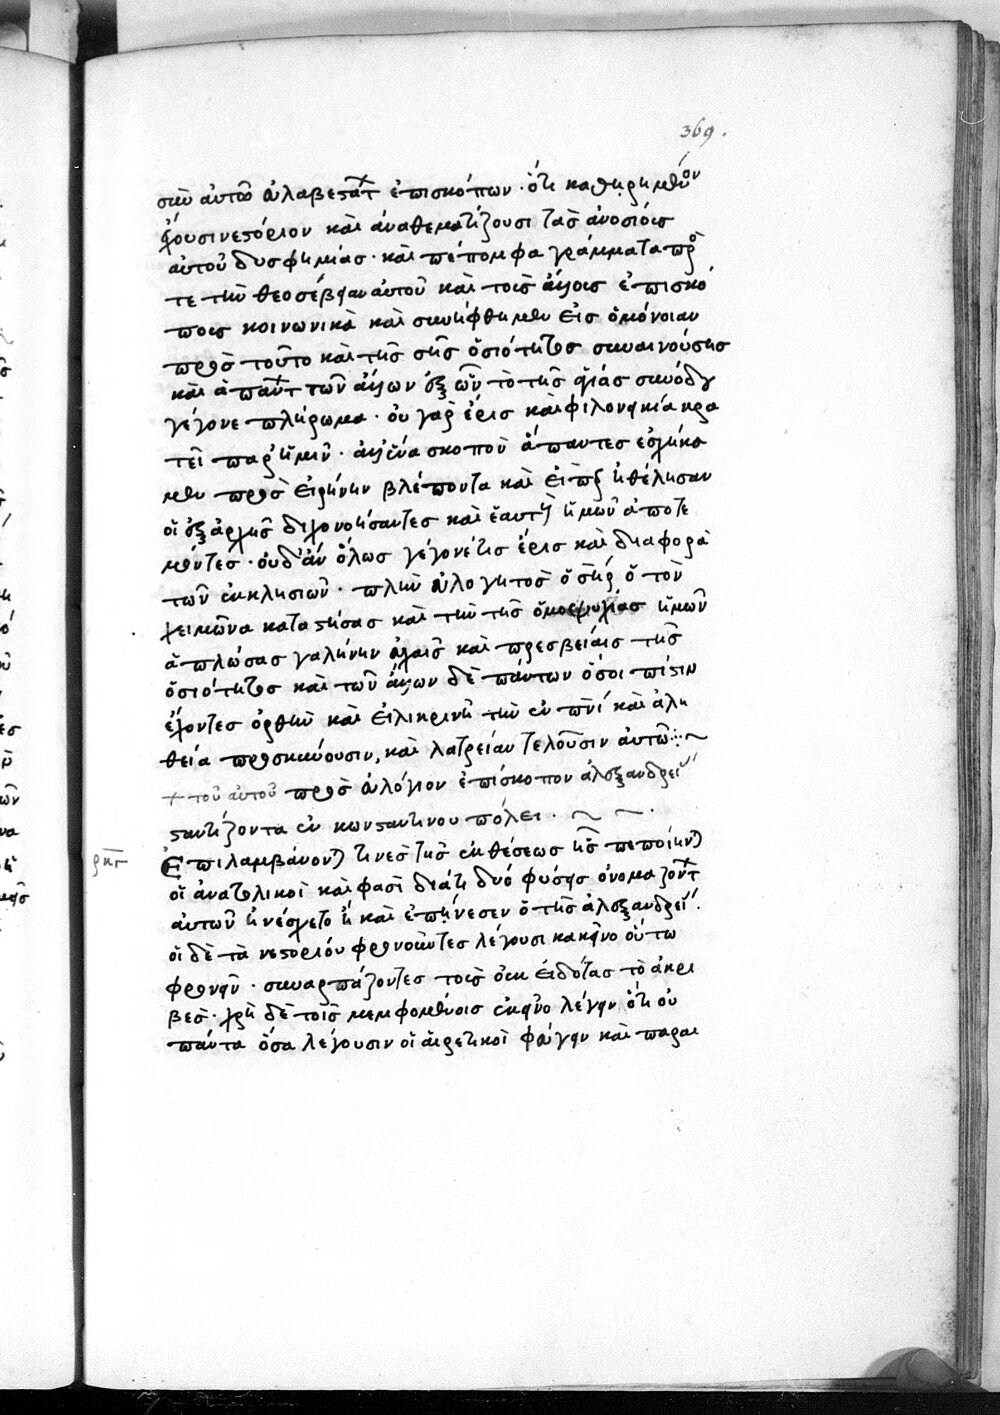 369.
σὺν αὐτῶ εὐλαβεστάτ ἐπισκόπων· ὅτι καθηρημένον
ἔχουσι νεστόριον καὶ ἀναθεματίζουσι τὰς ἀνοσίους
αὐτοῦ δυσφημίας· καὶ πέπομφα γράμματα πρός
τε τὴν θεοσέβειαν αὐτοῦ καὶ τοῖς ἄλλοις ἐπισκό
ποις κοινωνικὰ καὶ συνήφθημεν εἰς ὁμόνοιαν
πρὸς τοῦτο καὶ τῆς σῆς ὁσιότητος συναινούσης
καὶ ἁπάντ τῶν ἄλλων ἐξ ὧν τὸ τῆς ἁγίας συνόδου
γέγονε πλήρωμα· οὐ γὰρ ἔρις καὶ φιλονεικία κρα
τεῖ παρ' ἡμῖν· ἀλλ' ἕνα σκοπὸν ἅπαντες ἐσχήκα
μεν πρὸς εἰρήνην βλέποντα καὶ εἴπερ ἠθέλησαν
οἱ ἐξ ἀρχῆς διχονοήσαντες καὶ ἑαυτοὺς ἡμῶν ἀποτε
μόντες· οὐδ' ἂν ὅλως γέγονέ τις ἔρις καὶ διαφορὰ
τῶν ἐκκλησιῶν· πλὴν εὐλογητὸς ὁ σωτὴρ ὁ τὸν
χειμῶνα καταστήσας καὶ τὴν τῆς ὁμοψυχίας ἡμῶν
ἁπλώσας γαλήνην εὐχαῖς καὶ πρεσβείαις τῆς
ὁσιότητος καὶ τῶν ἄλλων δὲ πάντων ὅσοι πίστιν
ἔχοντες ὀρθὴν καὶ εἰλικρινῆ τὴν ἐν πνι καὶ ἀλη
θεία προσκυνουσιν, καὶ λατρείαν τελοῦσιν αὐτῶ:~
+ τοῦ αὐτοῦ πρὸς εὐλόγιον ἐπίσκοπον ἀλεξανδρεί
σαντίζοντα ἐν κωνσταντινου πόλει. ~ ~.
ρκγ
Ἐπιλαμβάνονται τινὲς τῆς ἐκθέσεως ἧς πεποίηνται
οἱ ἀνατολικοὶ καὶ φασὶ διάτι δύο φύσεις ὀνομαζόντ
αὐτῶν ἠνέσχετο ἢ καὶ ἐπήνεσεν ὁ τῆς ἀλεξανδρεί.
οἱ δὲ τὰ νεστορίου φρονοῦντες λέγουσι κἀκεῖνο οὕτω
φρονεῖν· συναρπάζοντες τοὺς οὐκ εἰδότας τὸ ἀκρι
βές· χρὴ δὲ τοῖς μεμφομένοις ἐκεῖνο λέγειν ὅτι οὐ
πάντα ὅσα λέγουσιν οἱ αἱρετικοὶ φεύγειν καὶ παραι